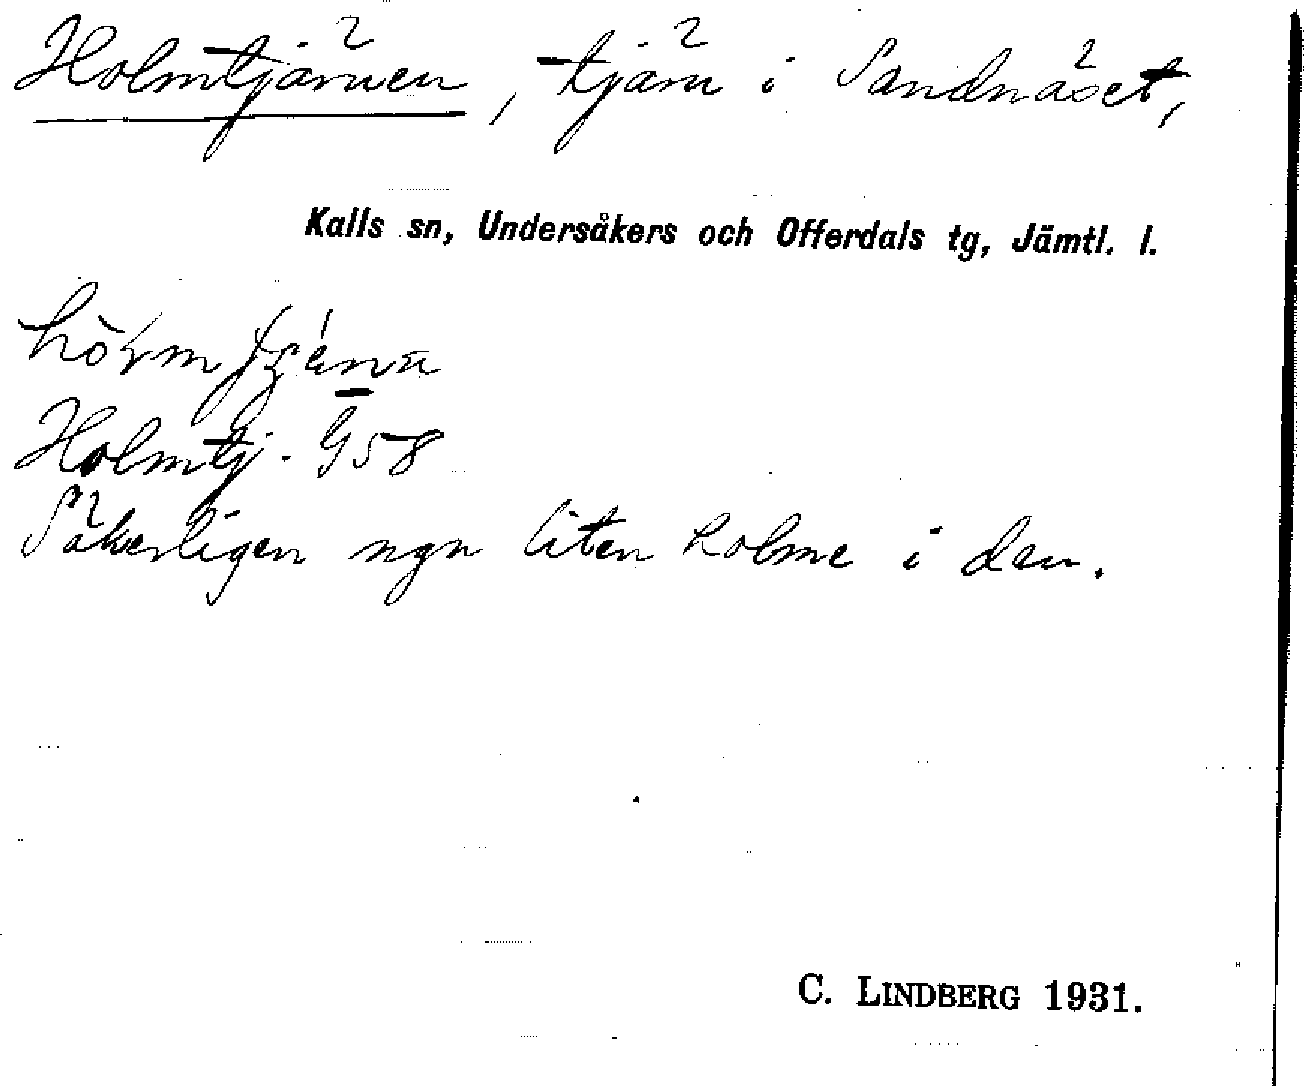 Holmtjärnen, tjärn i Sandnäset,
Kalls sn, Undersåkers och Offerdals tg, Jämtl. l.
Holmtj. G58
Säkerligen ngn liten holme i den.
C. LINDBERG 1931.